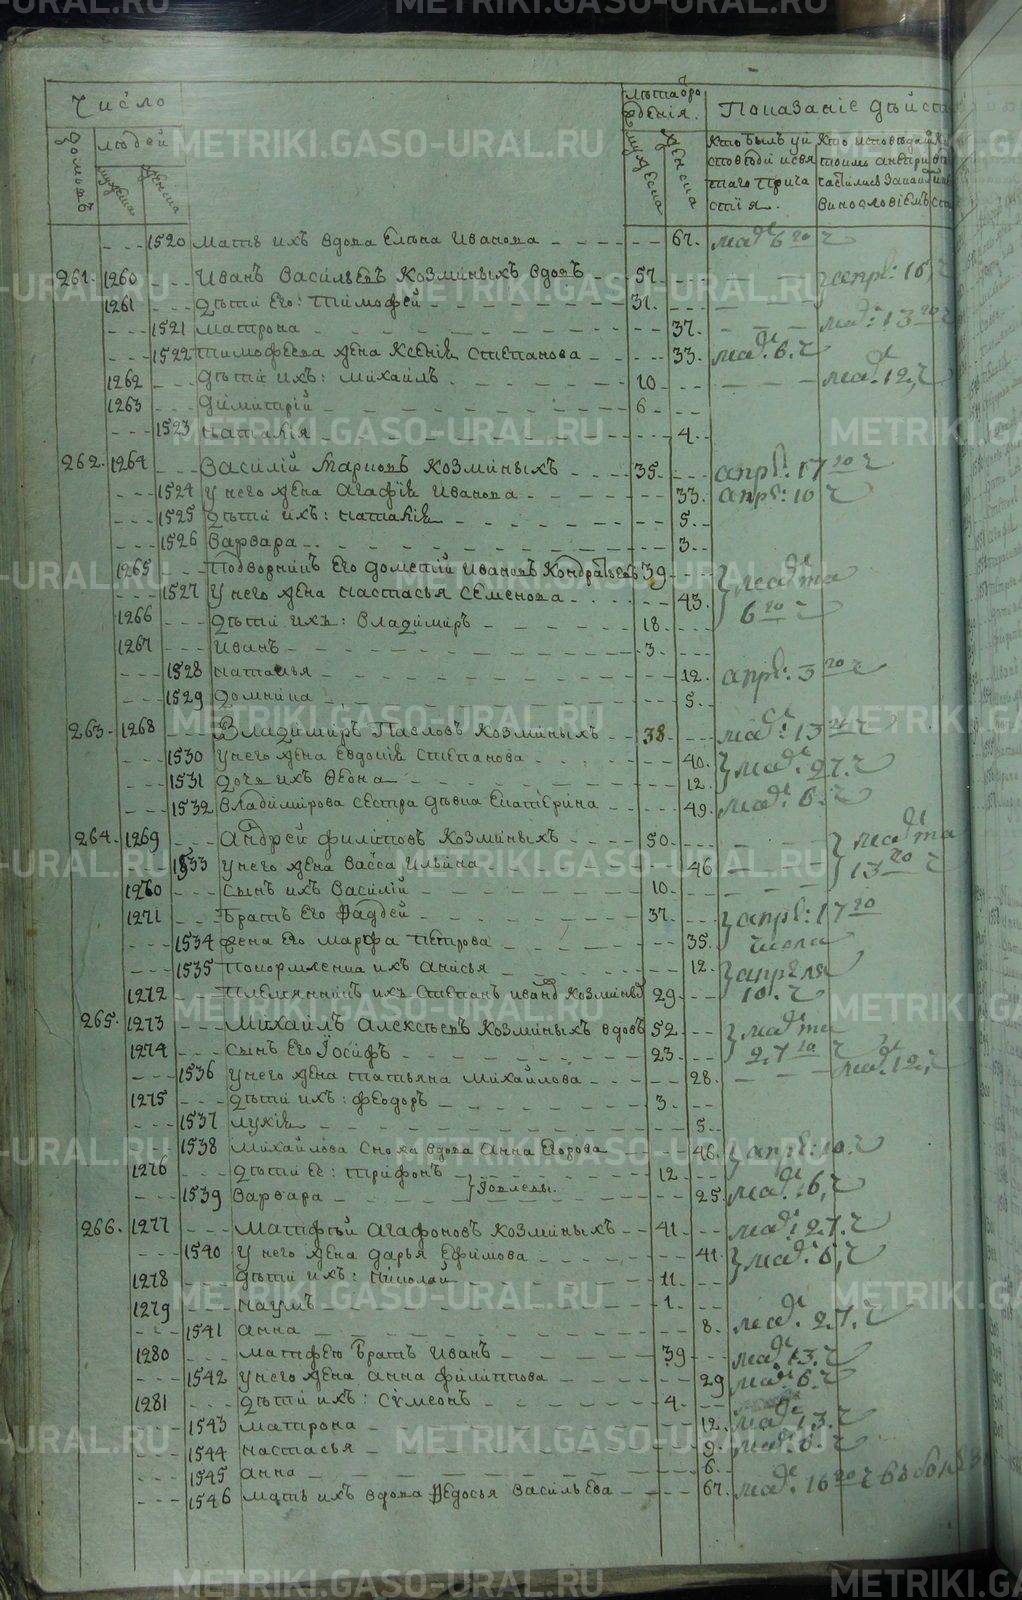 METRIKI.GASO-URAL.RU
Число
Лѣта ро
жденія.
Показаніе дѣйст
Домовъ
людей
Мужеска
Женска
Мужеска
Женска
Кто былъ у и
сповѣди и свя
таго Прича
стія.
Кто исповѣдал
1520 мать ихъ вдова Елена Иванова 67. мар: 6го ч
261. 1260 Иванъ Васильевъ Козминыхъ вдовъ 57. апрѣ: 16, ч
1261 дѣти Его: Тимофей 31.
1521 матрона 37. мар: 13го ч
1522 Тимофеева жена Ксенія Степанова 33. мар. 6. ч
1262 дѣти ихъ: Михаилъ 10 мар. 12, ч
1263 Димитрій 6
1523 Наталія 4.
262. 1264 Василій Марковъ Козминыхъ 35. апрѣ: 17го ч
1524 у него жена Агафія Иванова 33. апрѣ: 10 ч
1525 дѣти ихъ: Наталія 5.
1526 Варвара 3.
1265 Подворникъ Его Дометій Ивановъ Кондратьевъ 39 марта
1527 у него жена Настасья Семенова 43. 6го ч
1266 дѣти ихъ: Владимиръ 18.
1267 Иванъ 3.
1528 Наталья 12. апрѣ: 3го ч
1529 Домника 5.
263. 1268 Владимиръ Павловъ Козминыхъ 38. мар: 13го ч
1530 у него жена Евдокія Степанова 40. мар. 27. ч
1531 дочь ихъ Ѳеона 12.
1532 Владимирова сестра дѣвка Екатерина 49. мар. 6. ч
264. 1269 Андрей Филиповъ Козминыхъ 50. марта
1533 у него жена Васса Ильина 46 13го ч
1270 сынъ ихъ Василій 10.
1271 Братъ Его Фаддей 37. апрѣ: 17го
1534 жена Его Марфа Петрова 35. числа
1535 Покормленка ихъ Анисья 12. апрѣля
1272 Племянникъ ихъ Степанъ Ивановъ Козминыхъ 29 10. ч
265. 1273 Михаилъ Алексѣевъ Козминыхъ вдовъ 52 марта
1274 сынъ Его Іосифъ 23. 27го ч
1536 у него жена Татьяна Михайлова 28. мар. 12, ч
1275 дѣти ихъ: Феодоръ 3.
1537 Лукія 5.
1538 Михайлова сноха вдова Анна Егорова 46. апрѣ: 10. ч
1276 дѣти Ее: Трифонъ 12.
1539 Варвара 25. мар. 6, ч
266. 1277 Матфѣй Агафоновъ Козминыхъ 41. мар: 27. ч
1540 у него жена Дарья Ефимова 41. мар. 6, ч
1278 дѣти ихъ: Николай 11.
1279 Наумъ 1.
1541 Анна 8. мар. 27. ч
1280 Матфею Братъ Иванъ 39 мар. 13. ч
1542 у него жена Анна Филиппова 29 мар. 6. ч
1281 дѣти ихъ: Сѵмеонъ 4.
1543 Матрона 12. мар. 13. ч
1544 Настасья 9. мар. 6. ч
1545 Анна 6.
1546 мать ихъ вдова Ѳедосья Васильева 67. мар. 16го ч